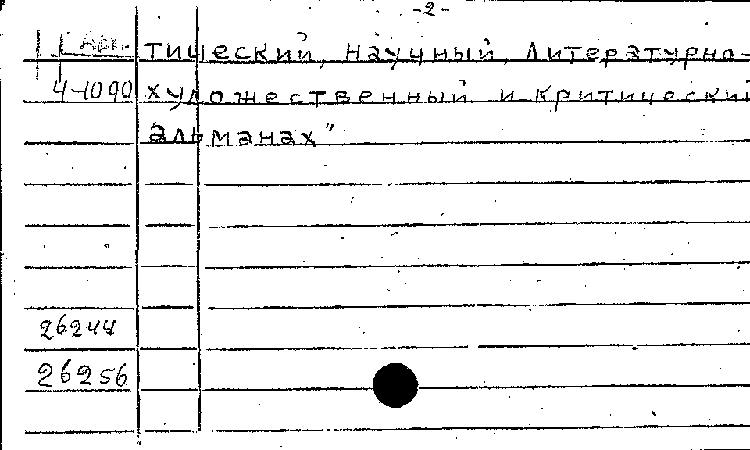 -2-
тический, научный, литературно-
4-1090 художественный и критический
альманах"
26244
26256